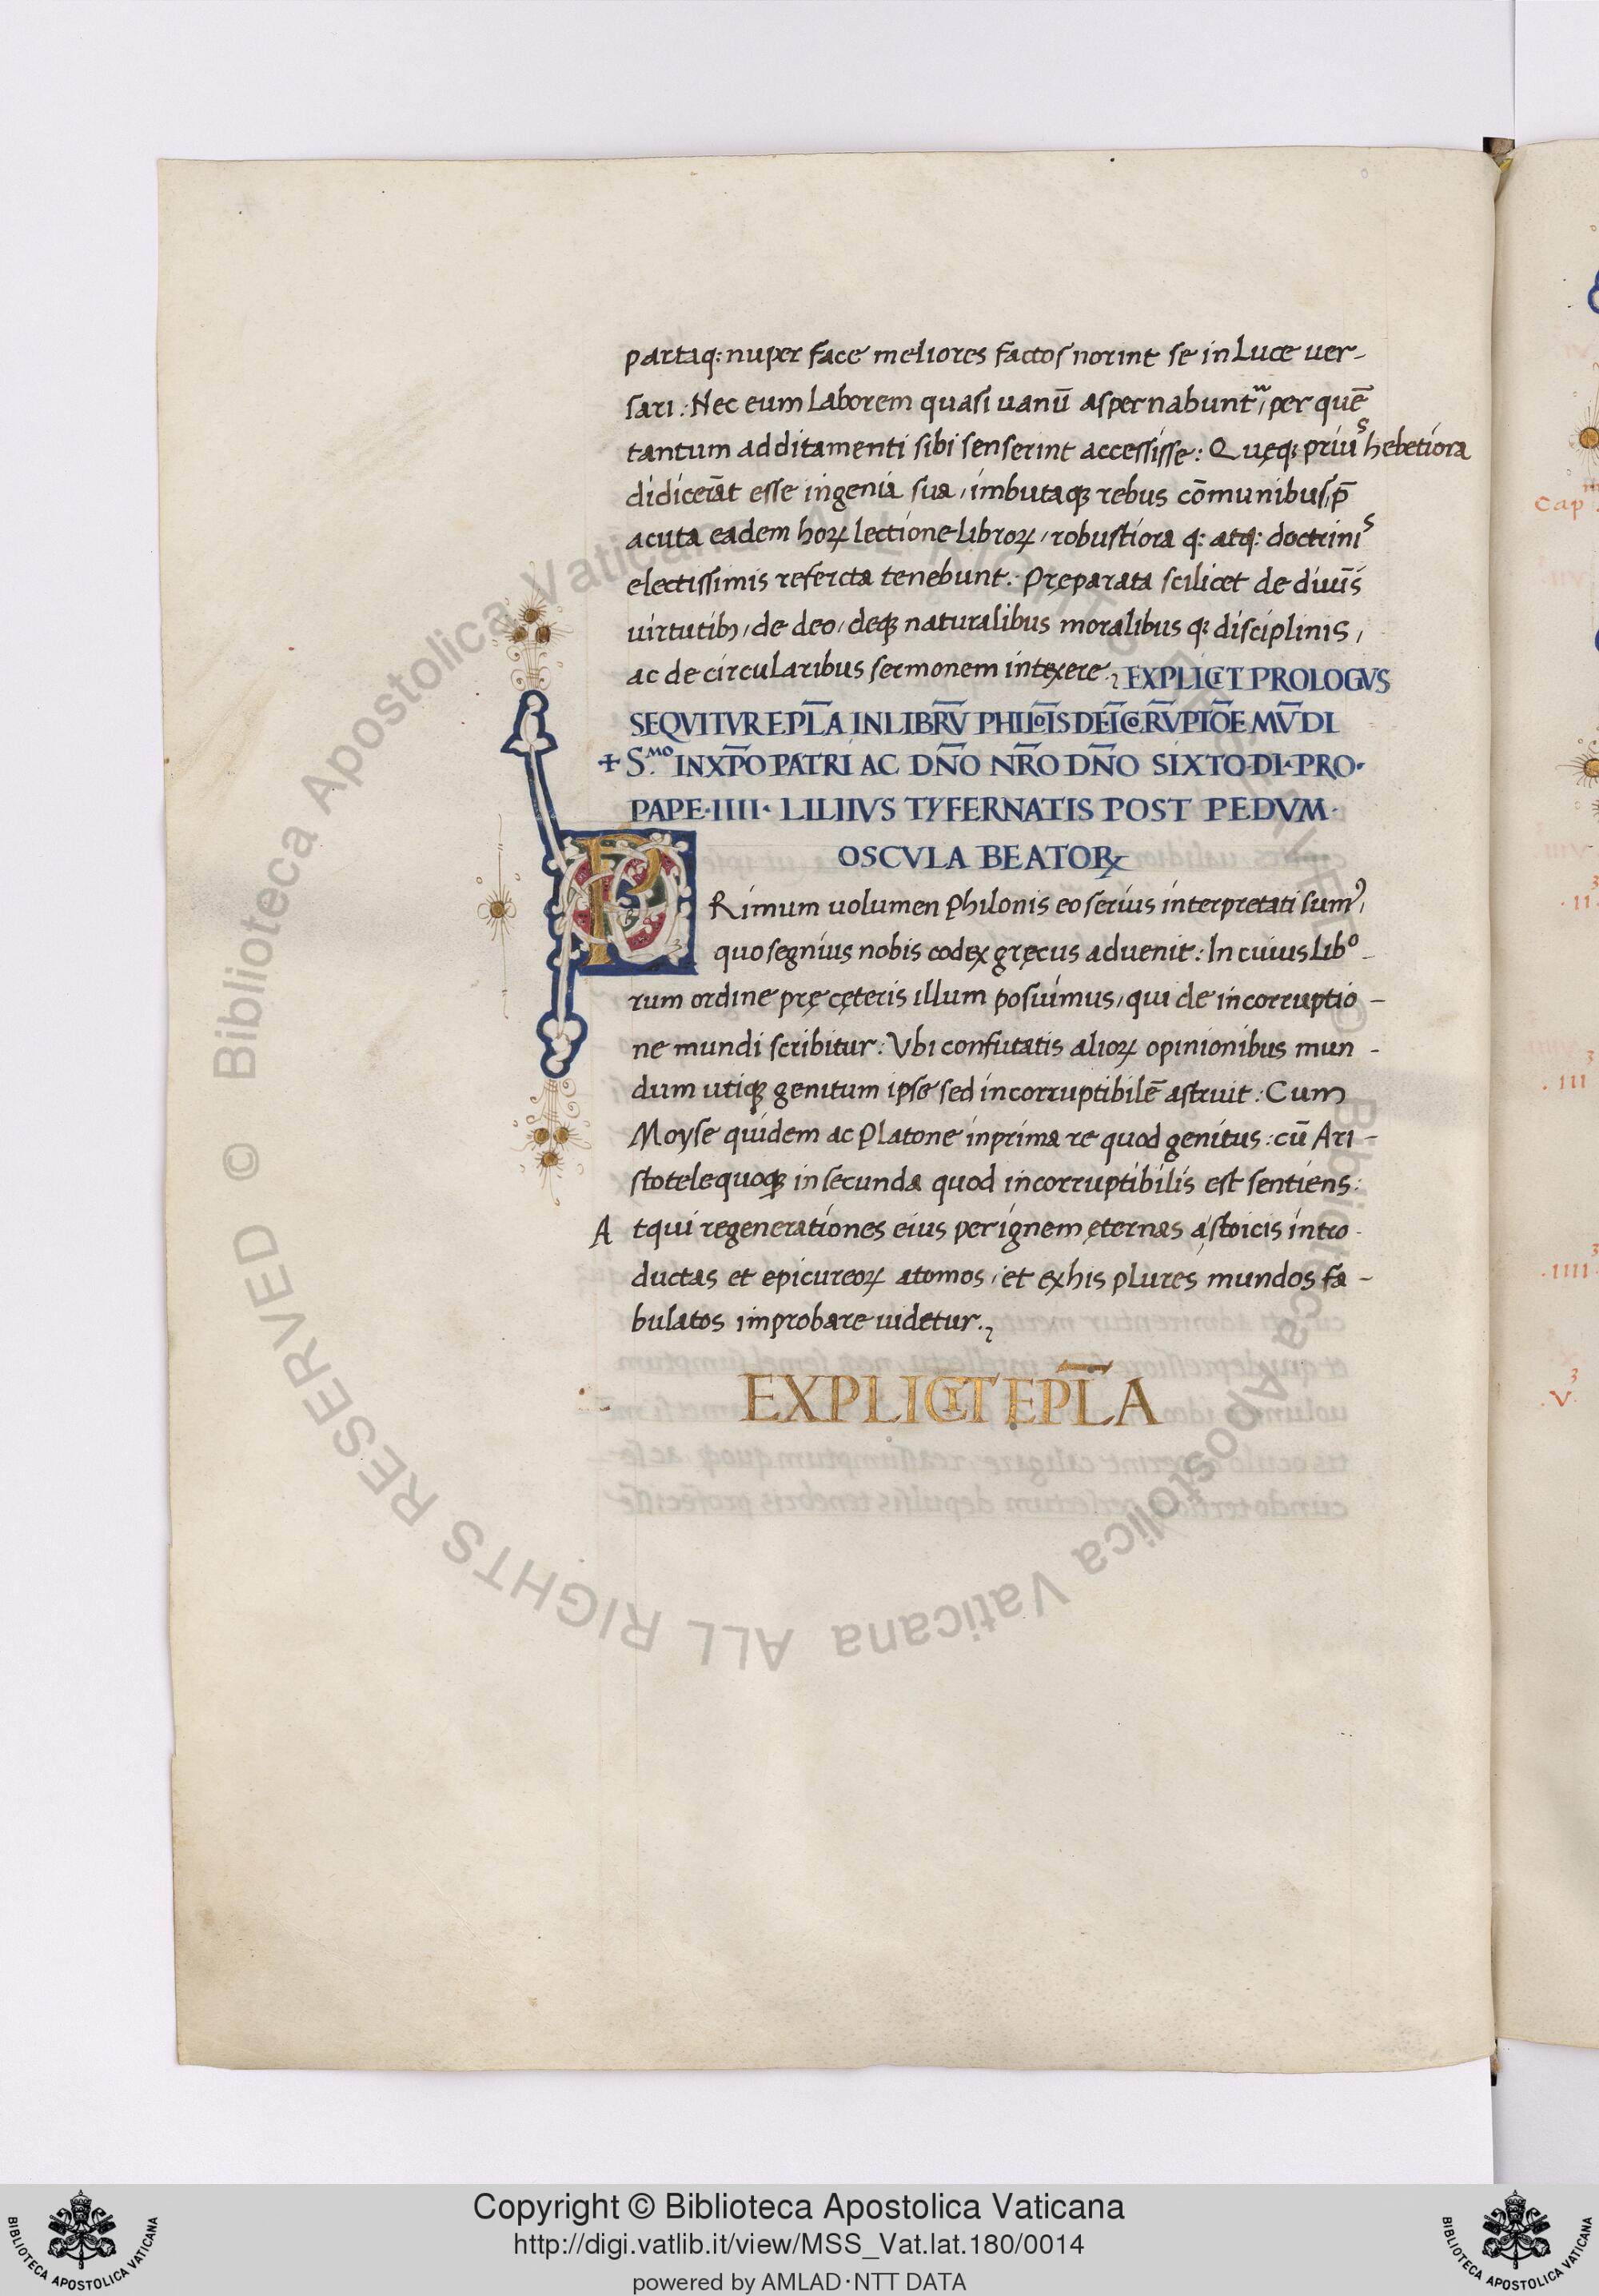 partaq: nuper face meliores factos norint se in Luce uer-
sari: Nec eum Laborem quasi uanū aspernabuntᵘʳ, per quē
tantum additamenti sibi senserint accessisse: Quęq; priuˢ hebetiora
didicerāt esse ingenia sua, imbutaqꝫ rebus cōmunibus, p̄
acuta eadem hoꝝ lectione libroꝝ, robustiora q: atq: doctriniˢ
electissimis refercta tenebunt. Pręparata scilicet de diuīs
uirtutibꝫ, de deo, deqꝫ naturalibus moralibus q; disciplinis,
ac de circularibus sermonem intexere. EXPLICIT PROLOGVS
SEQVITVR EPL̄A IN LIBRV̄ PHILOĪS DE ĪCORVPTIŌE MV̄DI
+ S.ᴹᴼ IN XP̄O PATRI AC DN̄O NR̄O DN̄O SIXTO·DI·PRO·
PAPE·IIII· LILIIVS TYFERNATIS POST PEDVM·
OSCVLA BEATOꝜ
PRimum uolumen Philonis eo serius interpretati sumꝰ,
quo segnius nobis codex gręcus aduenit: In cuius Libº-
rum ordine prę cęteris illum posuimus, qui de incorruptio-
ne mundi scribitur: Vbi confutatis alioꝝ opinionibus mun-
dum utiqꝫ genitum ipse sed incorruptibilē astruit: Cum
Moyse quidem ac Platone in prima re quod genitus: cū Ari-
stotele quoqꝫ in secunda quod incorruptibilis est sentiens:
Atqui regenerationes eius per ignem ęternas a stoicis intro-
ductas et epicureoꝝ atomos, et ex his plures mundos fa-
bulatos improbare uidetur.
EXPLICIT EPL̄A
Cap
.II
.III
.IIII.
.V.
© Biblioteca Apostolica Vaticana ALL RIGHTS RESERVED
© Biblioteca Apostolica Vaticana ALL RIGHTS RESERVED
Copyright © Biblioteca Apostolica Vaticana
http://digi.vatlib.it/view/MSS_Vat.lat.180/0014
powered by AMLAD·NTT DATA
BIBLIOTECA APOSTOLICA VATICANA
BIBLIOTECA APOSTOLICA VATICANA